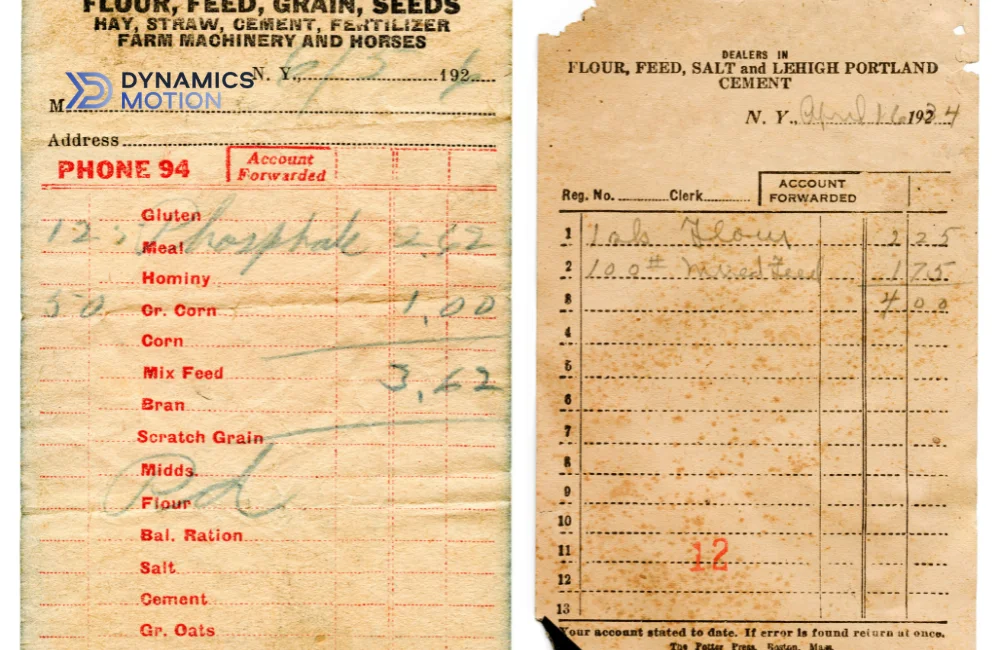 FLOUR, FEED, GRAIN, SEEDS
HAY, STRAW, CEMENT, FERTILIZER
FARM MACHINERY AND HORSES
DYNAMICS
MOTION
N. Y., 192
M
Address
PHONE 94
Account
Forwarded
Gluten
12 Phosphate 2.62
Meal
Hominy
50 Gr. Corn 1,00
Corn
Mix Feed 3,62
Bran
Scratch Grain
Midds.
Pd
Flour
Bal. Ration
Salt
Cement
Gr. Oats
DEALERS IN
FLOUR, FEED, SALT and LEHIGH PORTLAND
CEMENT
N. Y., April 16 1924
Reg. No. Clerk
ACCOUNT
FORWARDED
1 Flour 2 25
2 100# Mixed Feed 1 75
3 4 00
4
5
6
7
8
9
10
11
12
12
13
Your account stated to date. If error is found return at once.
The Potter Press, Boston, Mass.